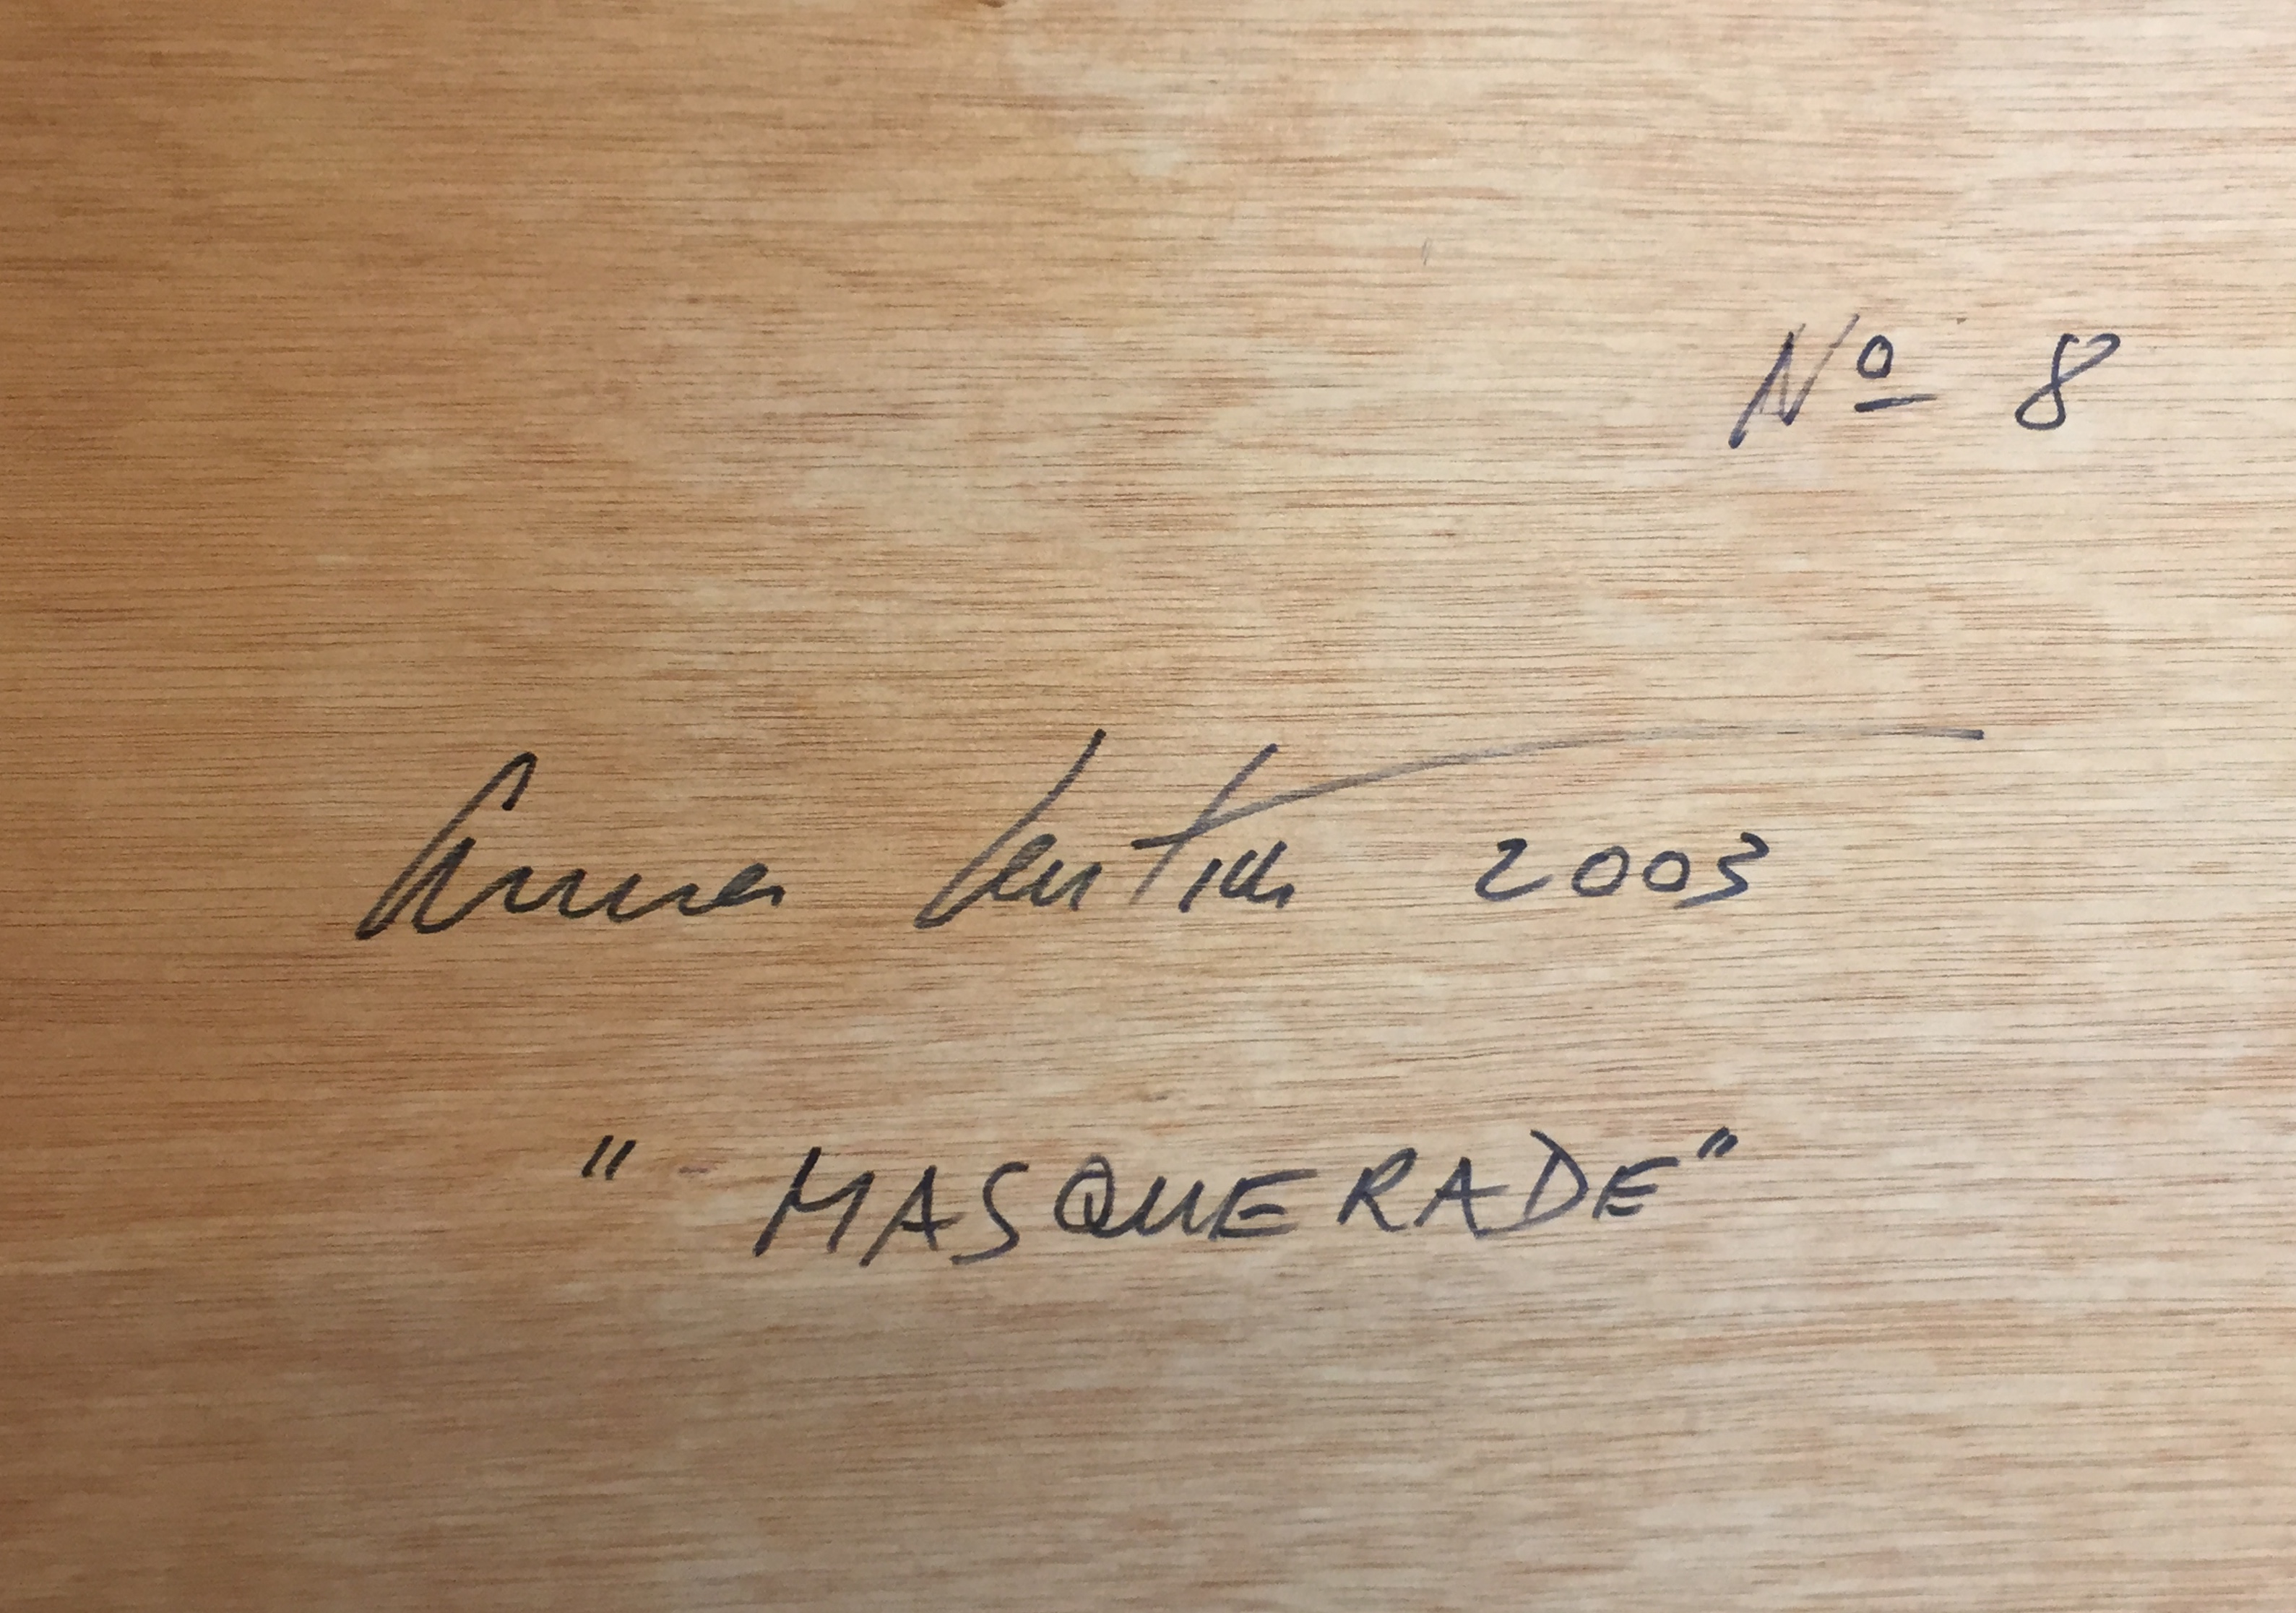 Nº 8
Anna 2003
" MASQUERADE"